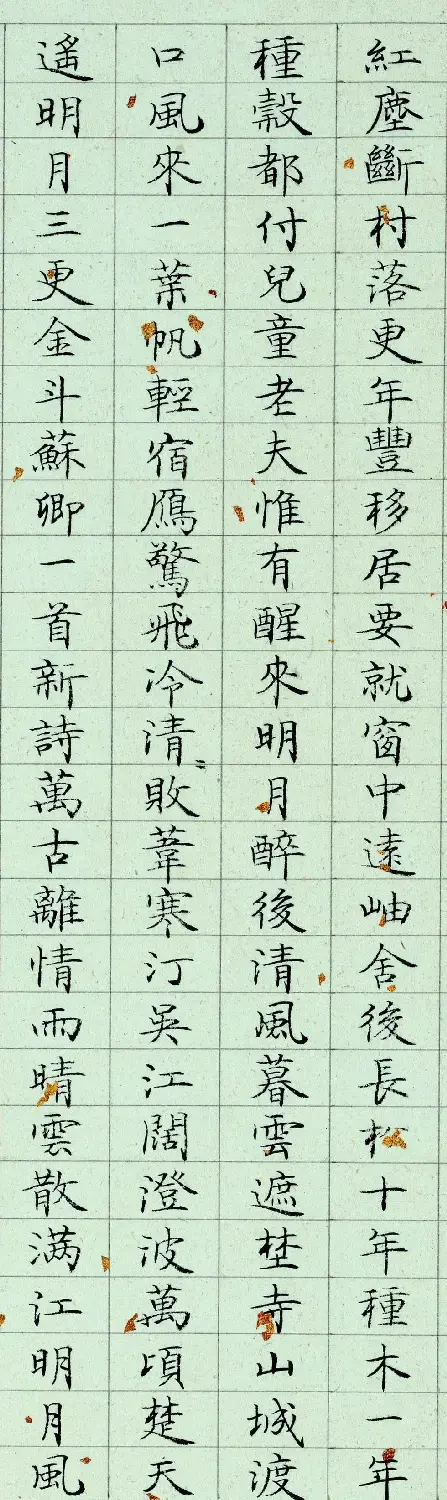 紅塵斷村落更年豐移居要就窗中遠岫舍後長松十年種木一年
種穀都付兒童老夫惟有醒來明月醉後清風暮雲遮埜寺山城渡
口風來一葉帆輕宿鴈驚飛冷清〻敗葦寒汀吳江闊澄波萬頃楚天
遙明月三更金斗蘇卿一首新詩萬古離情雨晴雲散滿江明月風